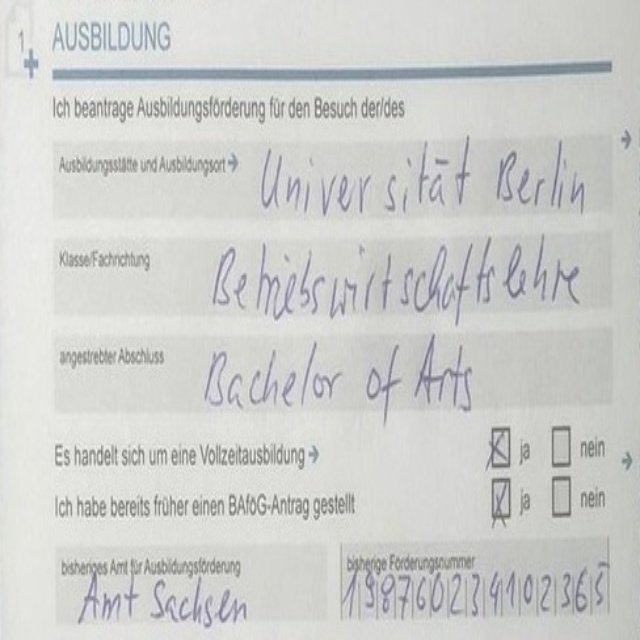 1
AUSBILDUNG
Ich beantrage Ausbildungsförderung für den Besuch der/des
Ausbildungsstätte und Ausbildungsort Universität Berlin
Klasse/Fachrichtung Betriebswirtschaftslehre
angestrebter Abschluss Bachelor of Arts
Es handelt sich um eine Vollzeitausbildung ja nein
Ich habe bereits früher einen BAföG-Antrag gestellt ja nein
bisheriges Amt für Ausbildungsförderung bisherige Förderungsnummer
Amt Sachsen 198760234102365